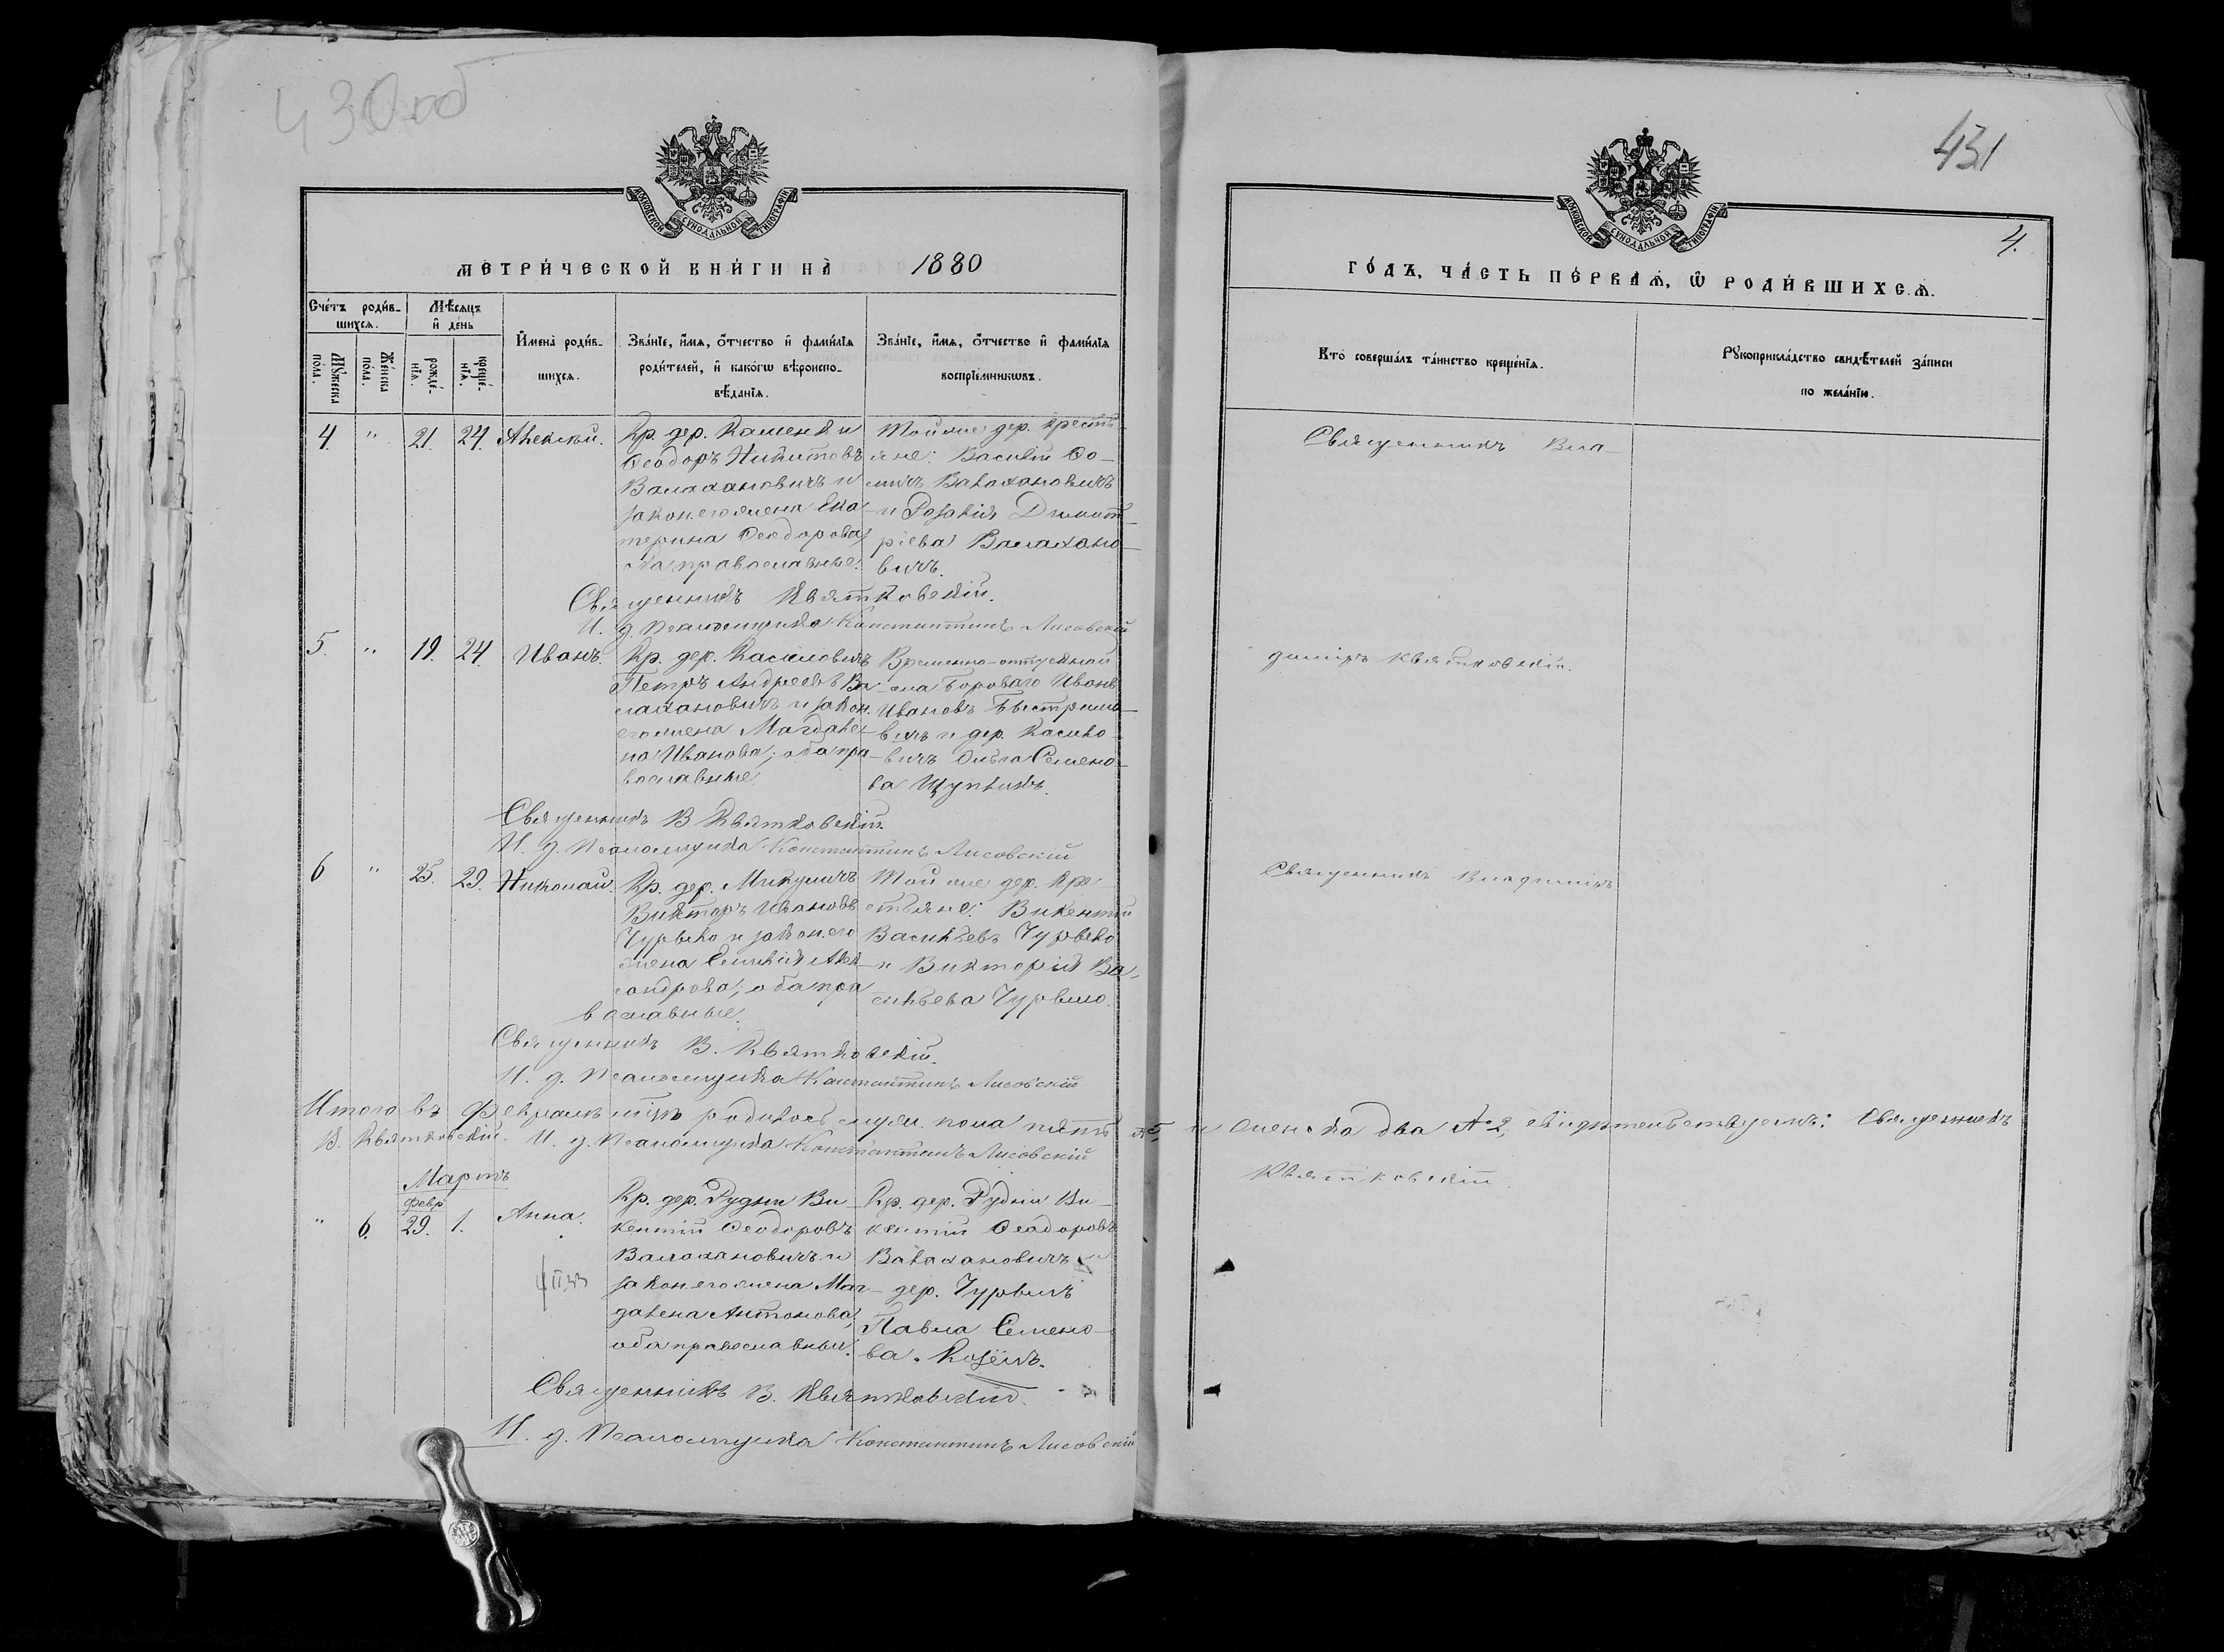 430об
МОСКОВСКОЙ СѴНОДАЛЬНОЙ ТИПОГРАФІИ
МЕТРИ́ЧЕСКОЙ КНИ́ГИ НА̀ 1880
Сче́тъ роди́в-
шихся.
Мѣ́сяцъ
и҆ де́нь
Мꙋ́жеска
по́ла.
Же́нска
по́ла.
рожде́-
нїя.
креще́-
нїя.
И҆мена̀ роди́в-
шихся.
Зва́нїе, и҆́мя, ѻ҆́тчество и҆ фами́лїя
роди́телей, и҆ како́гѡ вѣроиспо-
вѣ́данїя.
Зва́нїе, и҆́мя, ѻ҆́тчество и҆ фами́лїя
воспрїе́мникѡвъ.
4. " 21. 24. Алексѣй.
Кр. дер. Каменки
Ѳеодоръ Никитовъ
Валахановичъ и
закон. его жена Ека-
терина Ѳеодорова,
оба православные.
Той же дер. кресть-
яне: Василій Ѳо-
мичъ Валахановичъ
и Розалія Димит-
ріева Валахано-
вичъ.
Священникъ Квятковскій.
И. д. Псаломщика Константинъ Лисовскій
5. " 19. 24. Иванъ.
Кр. дер. Касиловичъ
Петръ Андреевъ Ва-
лахановичъ и закон.
его жена Магдале-
на Иванова; оба пра-
вославные.
Временно-отпускной
села Борового Иванъ
Ивановъ Быстримо-
вичъ и дер. Касило-
вичъ Ольга Семено-
ва Щупликъ.
Священникъ В Квятковскій.
И. д. Псаломщика Константинъ Лисовскій
6 " 25. 29. Николай.
Кр. дер. Микуличъ
Викторъ Ивановъ
Чурвело и закон. его
жена Емилія Алек-
сандрова; оба пра
вославные.
Той же дер. Кре-
стьяне: Викентій
Васильевъ Чурвело
и Викторія Ва-
сильева Чурвело.
Священникъ В. Квятковскій.
И. д. Псаломщика Константинъ Лисовскій
Итого въ Февралѣ мцѣ родилось муж. пола пять №5,
В. Квятковскій. И. д. Псаломщика Константинъ Лисовскій
Мартъ
Февр
" 6. 29. 1. Анна.
Кр. дер. Рудни Ви-
кентій Ѳеодоровъ
Валахановичъ и
закон. его жена Маг-
далена Антонова,
оба православные.
Кр. дер. Рудни Ви-
кентій Ѳеодоровъ
Валахановичъ и
дер. Чурвичъ
Павла Семено-
ва Козёлъ.
Священникъ В. Квятковскій.
И. д. Псаломщика Константинъ Лисовскій
431
МОСКОВСКОЙ СѴНОДАЛЬНОЙ ТИПОГРАФІИ
4.
ГО́ДЪ, ЧА́СТЬ ПЕ́РВАЯ, Ѡ҆ РОДИ́ВШИХСЯ.
Кто̀ соверша́лъ та́инство креще́нїя.
Рꙋкоприкла́дство свидѣ́телей за́писи
по жела́нїю.
Священникъ Вла-
димiръ Квятковскій.
Священникъ Владимiръ
и женска два №2, свидѣтельствуемъ: Священникъ
Квятковскій.